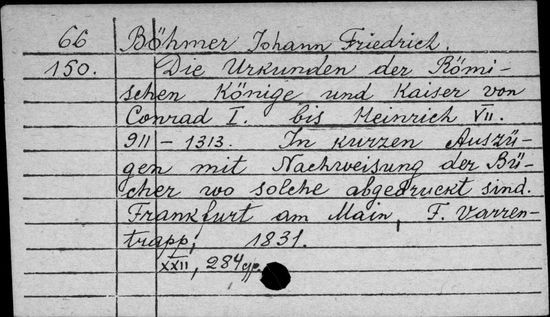 66 Böhmer Johann Friedrich.
150. Die Urkunden der Römi-
schen Könige und Kaiser von
Conrad I. bis Heinrich VII.
911 - 1313. In kurzen Auszü-
gen mit Nachweisung der Bü-
cher wo solche abgedruckt sind.
Frankfurt am Main, F. Varren-
trapp, 1831.
XXII, 284